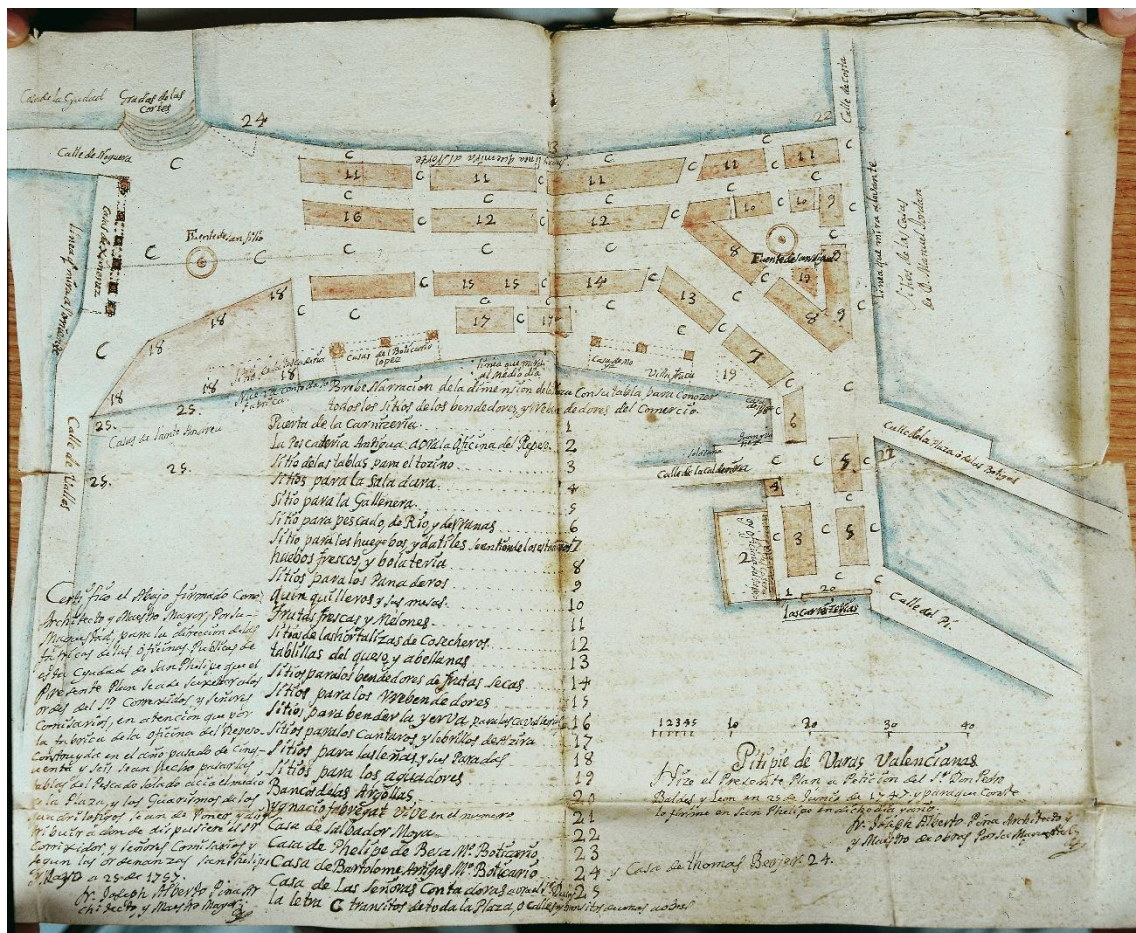 Casa de la Cyudad
Gradas de las
Cortes
24
22
Calle de Costa
Calle de Noguera
C
11
11
11
11
11
16
12
12
10
10
9
8
Fuente de san
6
C
linea que mira al Norte
linea que mira a levante
Sitios de las casas
de Dn. Manuel Jordan
18
15 15
14
13
19
8
9
17
17
7
18
18
18
18
Casas del Boticario
Lopez
linea que mira
al medio dia
19
25.
25.
25.
25.
Casas de Santo Andreu
Calle de Valles
6
Calle de la
Calle de la Plaza ó de las Botigas
5
4
2
3
5
1
20
Las Carnizerias
Calle del Pi.
Brebe Narracion de la dimension de la Plaza Con su tabla para Conozer
todos los Sitios de los bendedores, y Rebendedores del Comercio
Puerta de la Carnizeria. 1
La Pescateria Antigua, aora la Oficina del Repeso. 2
Sitio de las tablas para el tozino 3
Sitios para la Saladura. 4
Sitio para la Gallinera. 5
Sitio para pescado, de Rio, y de rranas 6
Sitio para los huebos y datiles 7
huebos frescos, y bolateria 8
Sitios para los Panaderos 9
quinquilleros y sus mesas. 10
Frutas frescas y Melones. 11
Sitios de las hortalizas de Cosecheros. 12
tablillas del queso y abellanas 13
Sitios para los bendedores de frutas secas 14
Sitios para los Rrebendedores 15
Sitios para bender la yerva, para las Cavallerias 16
Sitios para los Cantaros y lebrillos de Alzira 17
Sitios para las leñas, y sus Paradas 18
Sitios para los aguadores 19
Banco de las Argollas 20
Ygnacio fabregat Vive en el numero 21
Casa de Salbador Moya. 22
Casa de Phelipe de Besa Mro. Boticario, 23
Casa de Bartolome Artigas Mro. Boticario 24 y Casa de Thomas Berjer 24.
Casa de Las Señoras Contadoras 25
la letra C transitos de toda la Plaza, o Calles
Certifico el Abajo firmado Como
Architecto y Maestro Mayor, Por su
Magestad, para la direccion de las
fabricas de las Oficinas Publicas de
esta Cyudad de San Phelipe que el
Presente Plan
ordes del Sr. Correxidor, y Señores
Comisarios, en atencion que por
la fabrica de la oficina del Repeso
Construyda en el año pasado de Cinq-
uenta y Seis Se an hecho pasar las
tablas del Pescado Salado acia el medio
de la Plaza, y los Guarismos de los
quadrilateros Sean de Poner, y dis-
tribuir a donde dispusiere el Sr.
Correxidor, y Señores Comisarios y
segun las ordenanzas San Phelipe
y Mayo a 25 de 1757.
Fr. Joseph Alberto Pina Ar-
chitecto y Maestro Mayor
1 2 3 4 5 10 20 30 40
Pitipie de Varas Valencianas
Hizo el Presente Plan a Peticion del Sr. Don Pedro
Baldes y Leon en 25 de Junio de 1747 y para que Conste
lo firme en San Phelipe en dicho dia y año.
Fr. Joseph Alberto Pina Architecto y
y Maestro de obras Por su Magestad